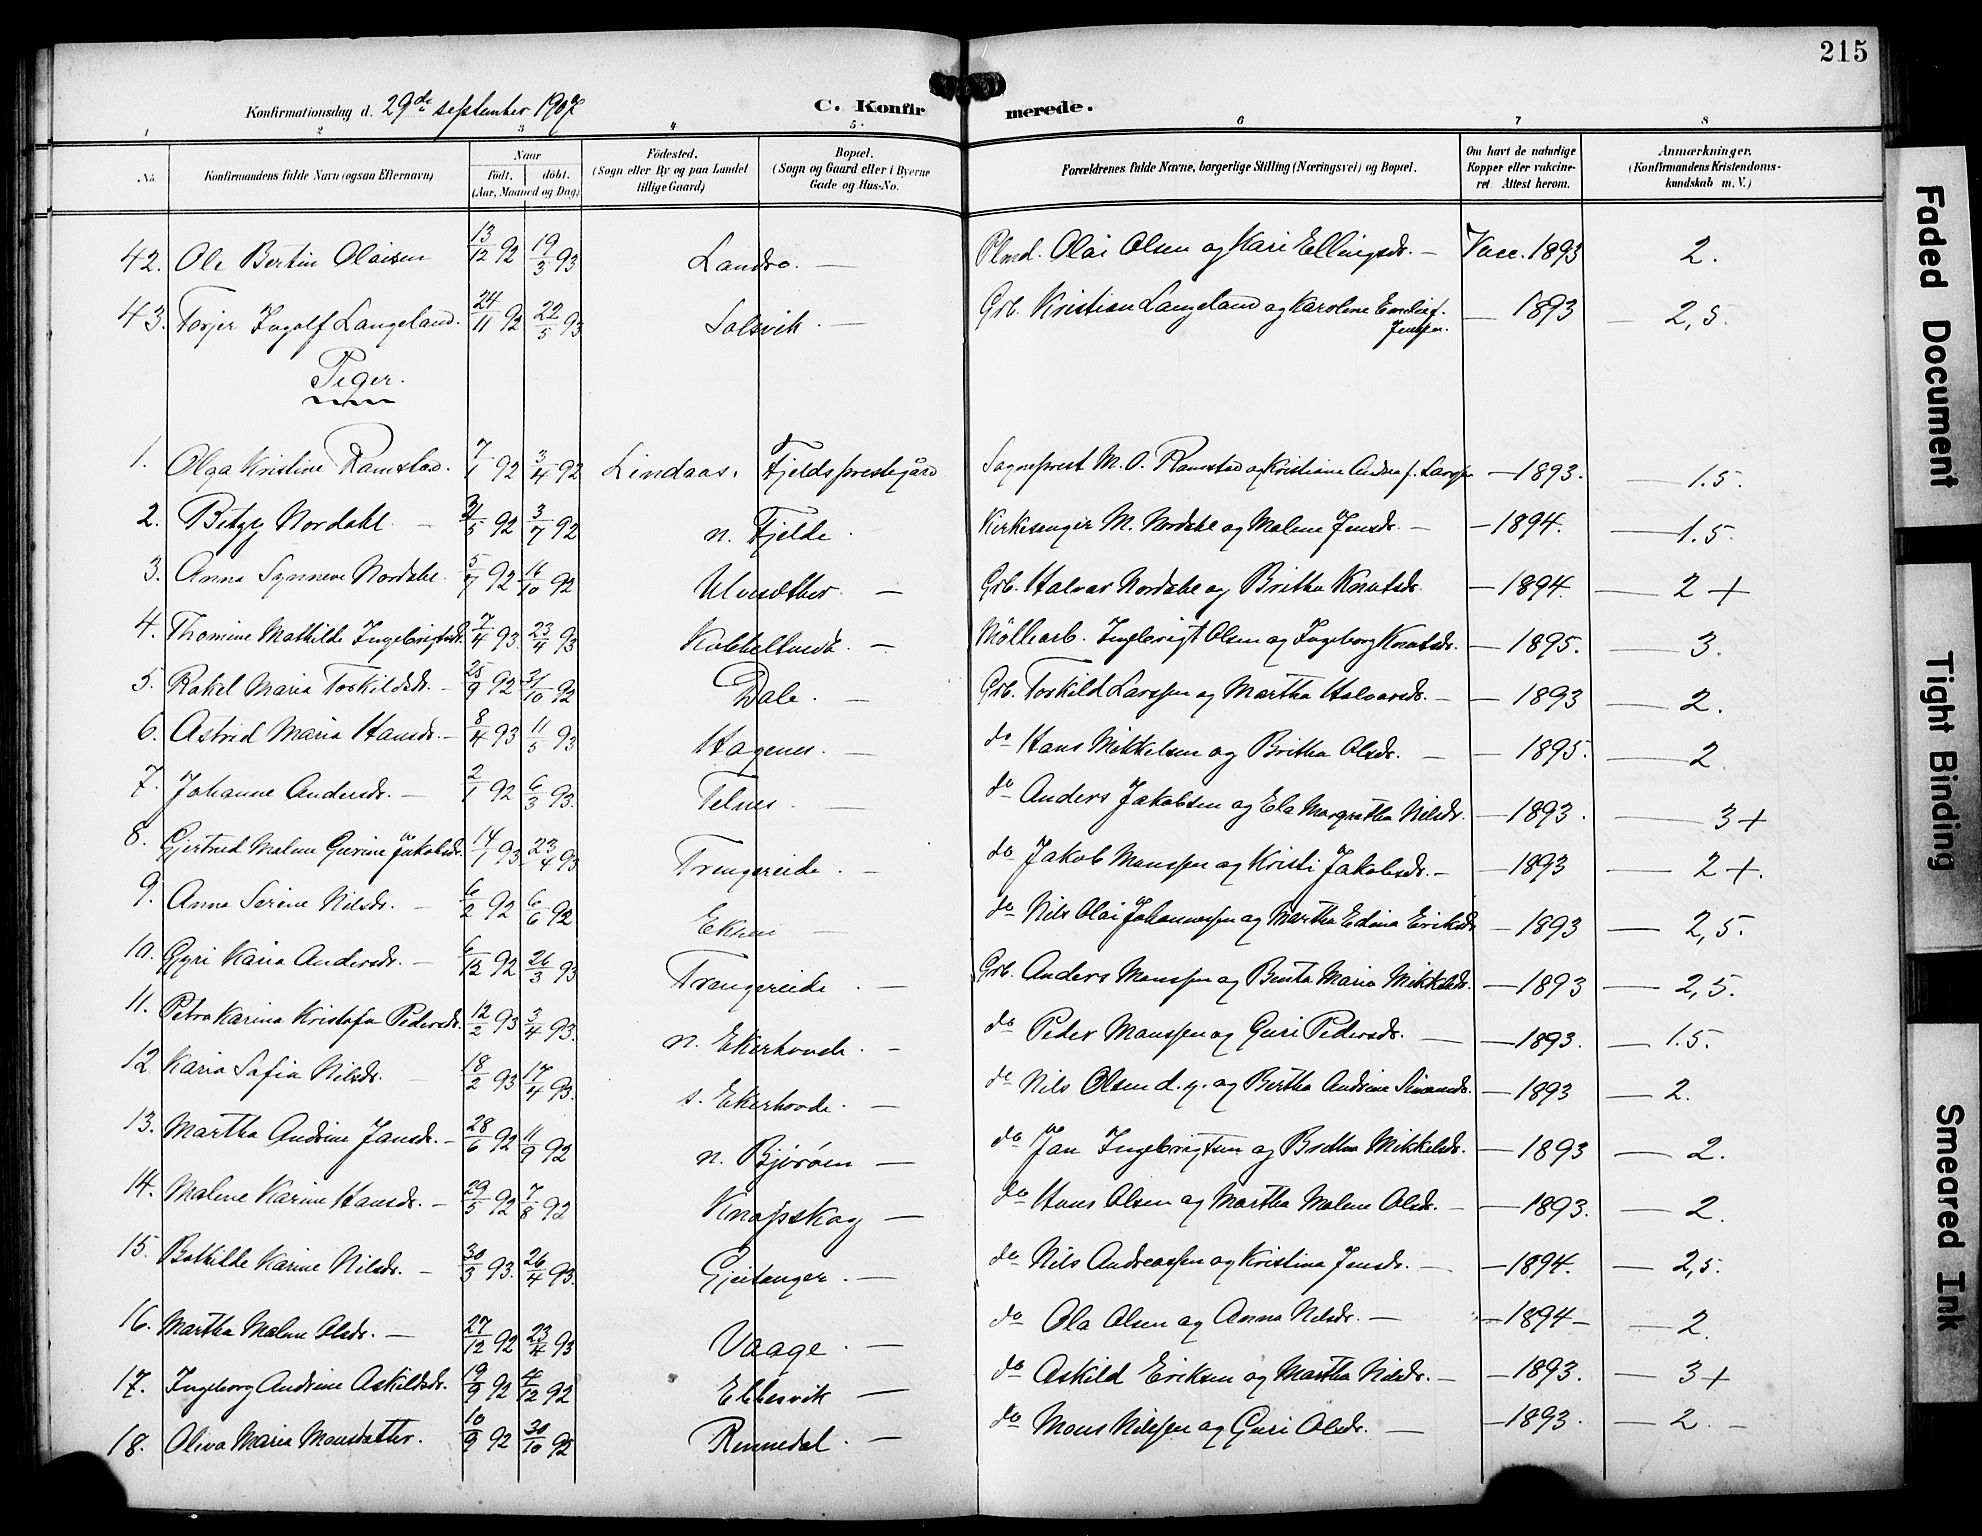 215
Konfirmationsdag d. 29de september 1907
C. Konfirmerede.
1 2 3 4 5 6 7 8
No. Konfirmandens fulde Navn (ogsaa Efternavn) Naar født. døbt. (Aar, Maaned og Dag) Fødested. (Sogn eller By og paa Landet tillige Gaard) Bopæl. (Sogn og Gaard eller i Byerne Gade og Hus-No. Forældrenes fulde Navne, borgerlige Stilling (Næringsvei) og Bopæl. Om havt de naturlige Kopper eller vakcineret Attest herom. Anmærkninger. (Konfirmandens Kristendomskundskab m. V.)
42. Ole Bertin Olaisen 13/12 92 19/3 93 Landro. — Plmd. Olai Olsen og Kari Ellingsdr. — Vacc. 1893 2.
43. Torjer Ingolf Langeland. 24/11 92 22/5 93 Solsvik. — Grb. Kristian Langeland og Karolene Emelie f. Jensen. — 1893 — 2,5.
Piger.
1. Olga Kristine Ramstad. 7/1 92 3/4 92 Lindaas. Fjeldsprestegård Sogneprest M. O. Ramstad og Kristiane Andrea f. Larsen — 1893. — 1.5.
2. Betzy Nordahl. — 31/5 92 3/7 92 n. Fjelde. Kirkesanger M. Nordahl og Malene Jensdr. — — 1894. — 1.5.
3. Anna Synneve Nordahl. 5/7 92 16/10 92 Ulvesæther. — Grb. Halvar Nordahl og Britha Knutsdr. — 1894. — 2 +
4. Thomine Mathilde Ingebrigtsdr. 7/4 93. 23/4 93 — Møllearb. Ingebrigt Olsen og Ingeborg Knutsdr. — 1895. — 3.
5. Rakel Maria Torkildsdr. — 25/9 92 31/10 92 Dale. — Grb. Torkild Larssen og Martha Halvarsdr. — — 1893 — 2.
6. Astrid Maria Hansdr. — 8/4 93 11/5 93 Hagenes. — do Hans Mikkelsen og Britha Olsdr. — — 1895. — 2
7. Johanne Andersdr. — 2/1 92 6/3 93. Telnes. — do Anders Jakobsen og Ela Margretha Nilsdr. — 1893. — 3 +
8. Gjertrud Malene Gurine Jakobsdr. 14/1 93. 23/4 93 Trengereide. — do Jakob Monssen og Kristi Jakobsdr. — — 1893 — 2 +.
9. Anna Serine Nilsdr. — 6/2 92 6/6 92 Eksen — do Nils Olai Johannessen og Martha Edina Eriksdr. — 1893 — 2,5.
10. Gyri Karia Andersdr. — 6/12 92 26/3 93 Trengereide. — Grb. Anders Monssen og Benta Maria Mikkelsdr. — 1893 — 2,5.
11. Petra Karina Kristofa Pedersdr. 12/2 93 3/4 93. n. Ekerhovde. — do Peder Monssen og Guri Pedersdr. — — 1893. — 1.5.
12 Karia Sofia Nilsdr. — 18/2 93 17/4 93. s. Ekerhovde. — do Nils Olsen d. y. og Bertha Andrine Simonsdr. — 1893 — 2.
13. Martha Andrine Jansdr. — 28/6 92 11/9 92 n. Bjørøen — do Jan Ingebrigtsen og Britha Mikkelsdr. — 1893 — 2.
14. Malene Karine Hansdr. — 29/5 92 7/8 92 Knapskog — do Hans Olsen og Martha Malene Olsdr. — — 1893. — 2.
15. Bothilde Karine Nilsdr. — 30/3 93. 26/4 93. Gjeitanger. — do Nils Andreassen og Kristina Jensdr. — — 1894. — 2,5.
16. Martha Malene Olsdr. — 27/12 92 23/4 93 Vaage. — do Ola Olsen og Anna Nilsdr. — — 1894 — — 2.
17. Ingeborg Andrine Askildsdr. 19/9 92 4/12 92 Ebbesvik — do Askild Eriksen og Martha Nilsdr. — — 1893. — 3 +
18. Oliva Maria Monsdatter. 10/9 92 30/10 92 Rennedal. — do Mons Nilssen og Guri Olsdr. — — 1893. — 2. —
Faded Document
Tight Binding
Smeared Ink